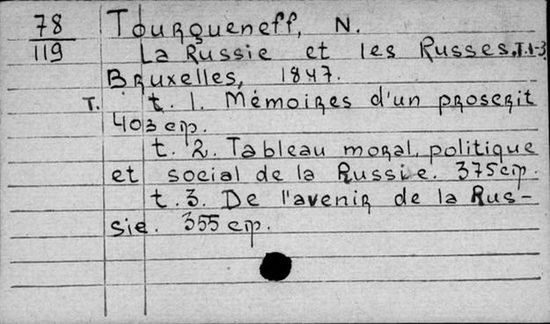 78
119
Tourgueneff, N.
La Russie et les Russes, T.1-3
Bruxelles, 1847.
T.
t. 1. Mémoires d'un proscrit
403 стр.
t. 2. Tableau moral, politique
et social de la Russie. 375 стр.
t. 3. De l'avenir de la Rus-
sie. 355 стр.